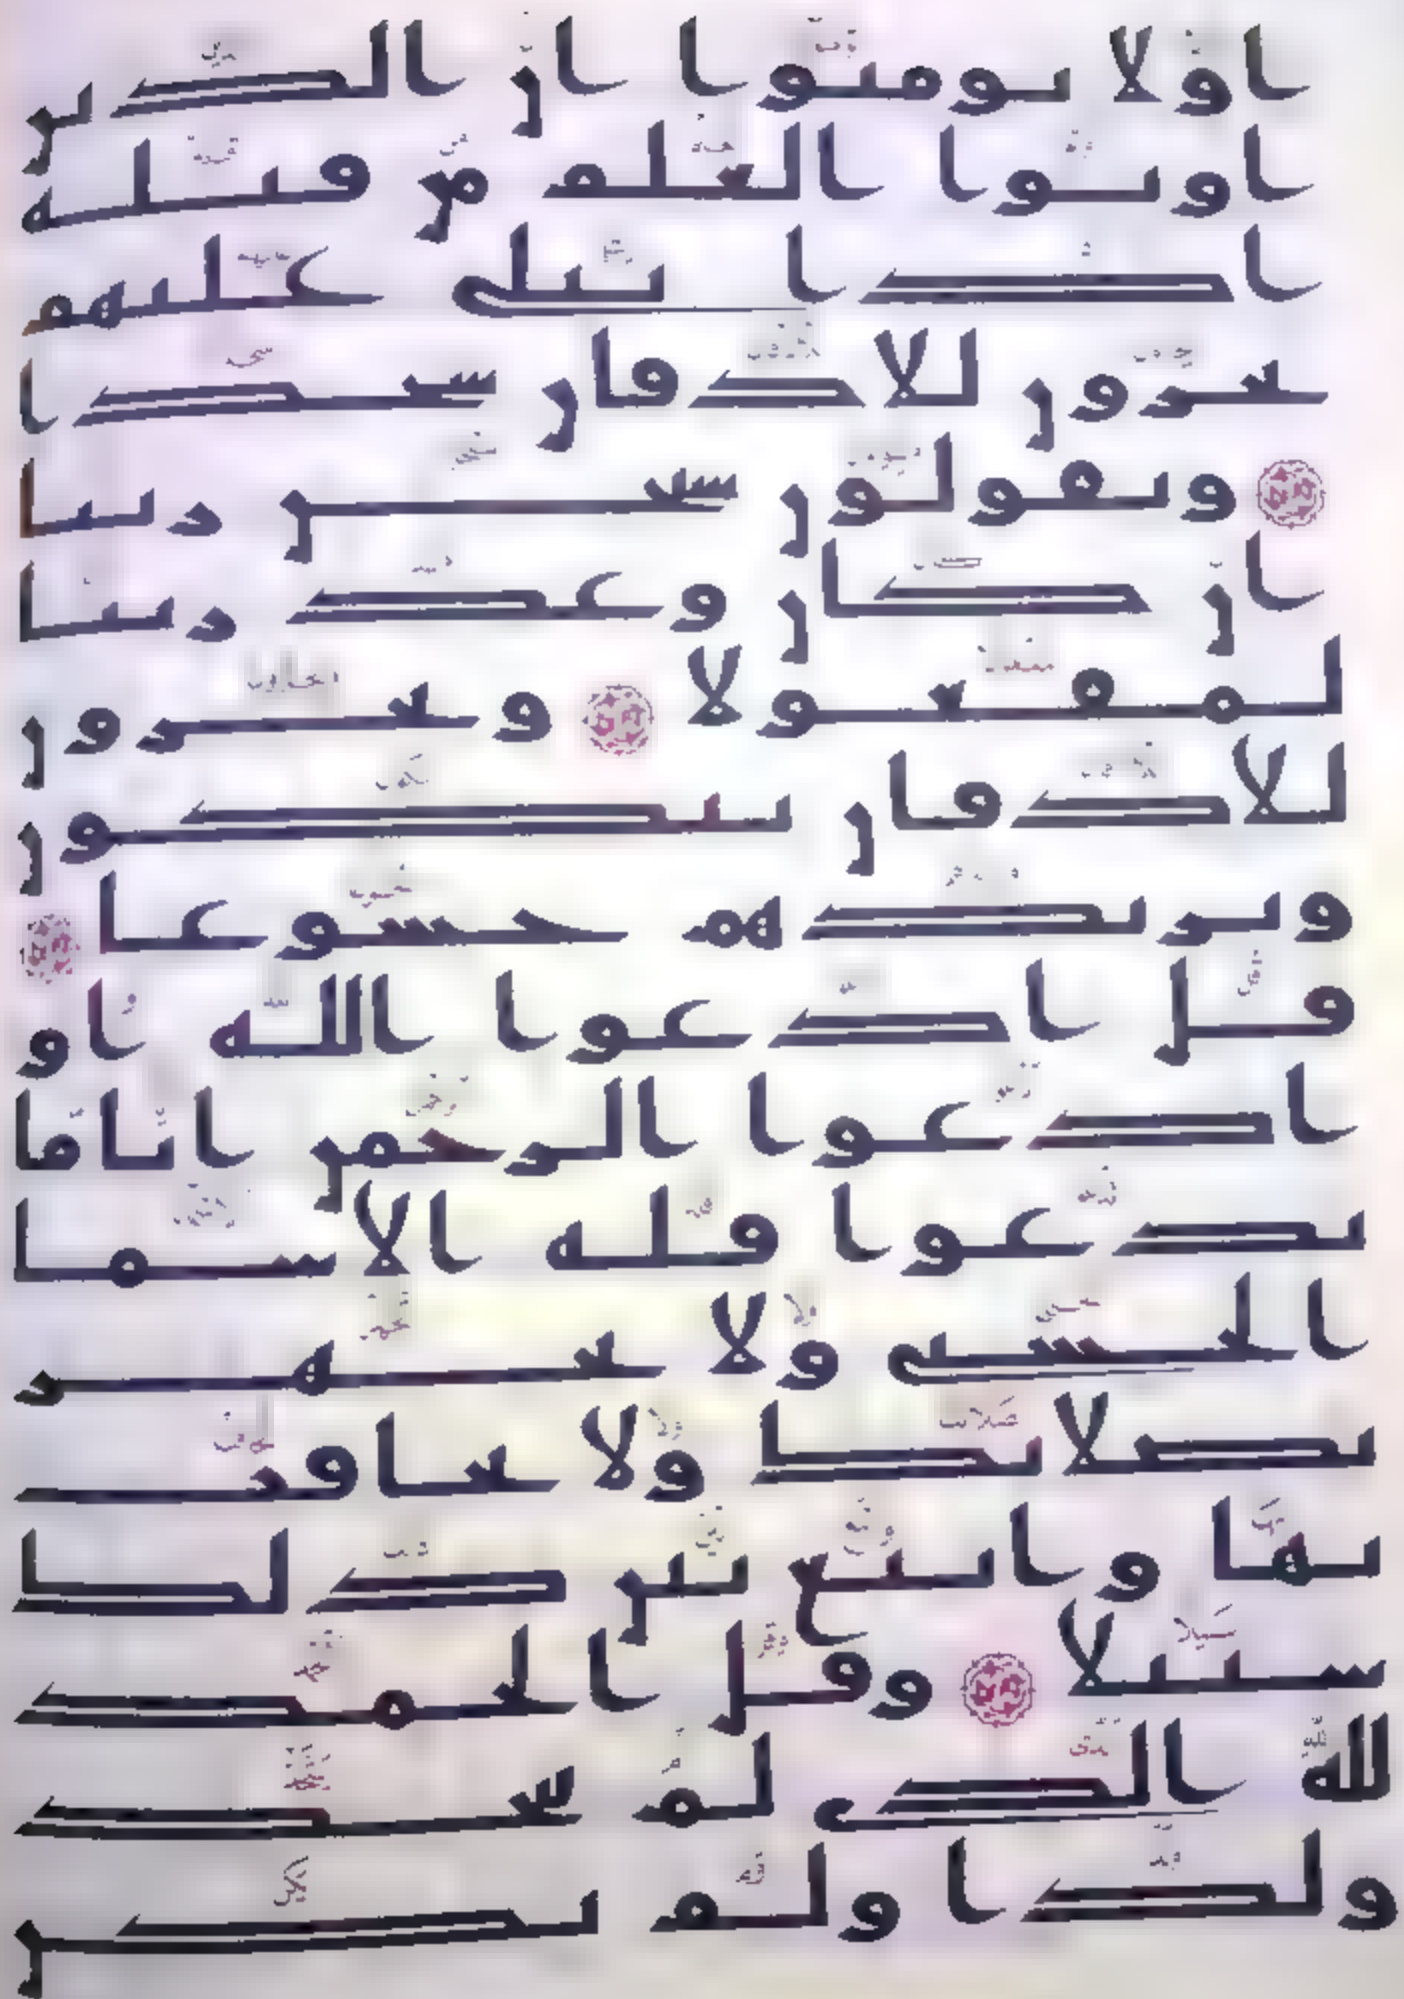 او لا تومنوا ان الذين
اوتوا العلم من قبله
اذا يتلى عليهم
يخرون للاذقان سجدا
ويقولون سبحن ربنا
ان كان وعد ربنا
لمفعولا ويخرون
للاذقان يبكون
ويزيدهم خشوعا
قل ادعوا الله او
ادعوا الرحمن اياما
تدعوا فله الاسما
الحسنى ولا تجهر
بصلاتك ولا تخافت
بها وابتغ بين ذلك
سبيلا وقل الحمد
لله الذي لم يتخذ
ولدا ولم يكن